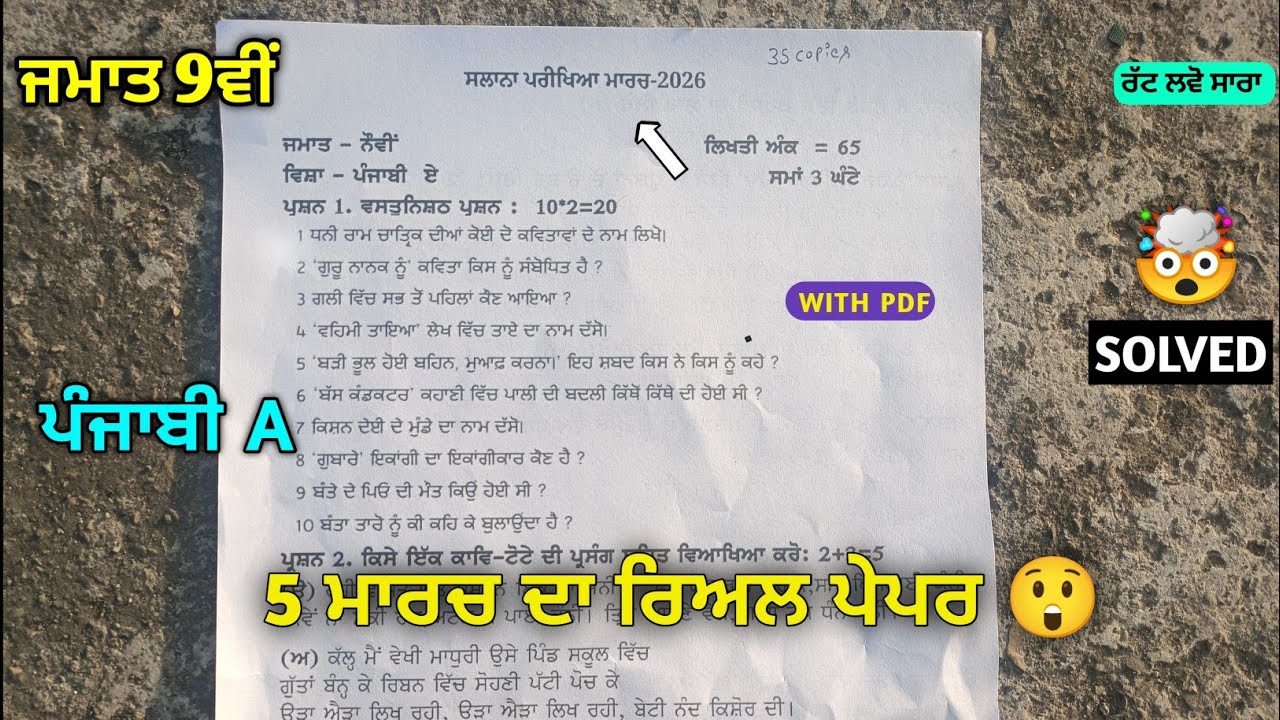 ਜਮਾਤ 9ਵੀਂ
35 copies
ਸਲਾਨਾ ਪਰੀਖਿਆ ਮਾਰਚ-2026
ਰੱਟ ਲਵੋ ਸਾਰਾ
ਜਮਾਤ - ਨੌਵੀਂ
ਲਿਖਤੀ ਅੰਕ = 65
ਵਿਸ਼ਾ - ਪੰਜਾਬੀ ਏ
ਸਮਾਂ 3 ਘੰਟੇ
ਪ੍ਰਸ਼ਨ 1. ਵਸਤੁਨਿਸ਼ਠ ਪ੍ਰਸ਼ਨ : 10*2=20
1 ਧਨੀ ਰਾਮ ਚਾਤ੍ਰਿਕ ਦੀਆਂ ਕੋਈ ਦੋ ਕਵਿਤਾਵਾਂ ਦੇ ਨਾਮ ਲਿਖੋ।
2 ‘ਗੁਰੂ ਨਾਨਕ ਨੂੰ’ ਕਵਿਤਾ ਕਿਸ ਨੂੰ ਸੰਬੋਧਿਤ ਹੈ ?
3 ਗਲੀ ਵਿੱਚ ਸਭ ਤੋਂ ਪਹਿਲਾਂ ਕੌਣ ਆਇਆ ?
WITH PDF
4 ‘ਵਹਿਮੀ ਤਾਇਆ’ ਲੇਖ ਵਿੱਚ ਤਾਏ ਦਾ ਨਾਮ ਦੱਸੋ।
SOLVED
5 ‘ਬੜੀ ਭੂਲ ਹੋਈ ਬਹਿਨ, ਮੁਆਫ਼ ਕਰਨਾ।’ ਇਹ ਸ਼ਬਦ ਕਿਸ ਨੇ ਕਿਸ ਨੂੰ ਕਹੇ ?
6 ‘ਬੱਸ ਕੰਡਕਟਰ’ ਕਹਾਣੀ ਵਿੱਚ ਪਾਲੀ ਦੀ ਬਦਲੀ ਕਿੱਥੋਂ ਕਿੱਥੇ ਦੀ ਹੋਈ ਸੀ ?
ਪੰਜਾਬੀ A
7 ਕਿਸ਼ਨ ਦੇਈ ਦੇ ਮੁੰਡੇ ਦਾ ਨਾਮ ਦੱਸੋ।
8 ‘ਗੁਬਾਰੇ’ ਇਕਾਂਗੀ ਦਾ ਇਕਾਂਗੀਕਾਰ ਕੌਣ ਹੈ ?
9 ਬੰਤੇ ਦੇ ਪਿਓ ਦੀ ਮੌਤ ਕਿਉਂ ਹੋਈ ਸੀ ?
10 ਬੰਤਾ ਤਾਰੋ ਨੂੰ ਕੀ ਕਹਿ ਕੇ ਬੁਲਾਉਂਦਾ ਹੈ ?
ਪ੍ਰਸ਼ਨ 2. ਕਿਸੇ ਇੱਕ ਕਾਵਿ-ਟੋਟੇ ਦੀ ਪ੍ਰਸੰਗ ਵਿਆਖਿਆ ਕਰੋ:
5 ਮਾਰਚ ਦਾ ਰਿਅਲ ਪੇਪਰ
(ਅ) ਕੱਲ੍ਹ ਮੈਂ ਵੇਖੀ ਮਾਧੁਰੀ ਉਸੇ ਪਿੰਡ ਸਕੂਲ ਵਿੱਚ
ਗੁੱਤਾਂ ਬੰਨ੍ਹ ਕੇ ਰਿਬਨ ਵਿੱਚ ਸੋਹਣੀ ਪੱਟੀ ਪੋਚ ਕੇ
ਊੜਾ ਐੜਾ ਲਿਖ ਰਹੀ, ਊੜਾ ਐੜਾ ਲਿਖ ਰਹੀ, ਬੇਟੀ ਨੰਦ ਕਿਸ਼ੋਰ ਦੀ।